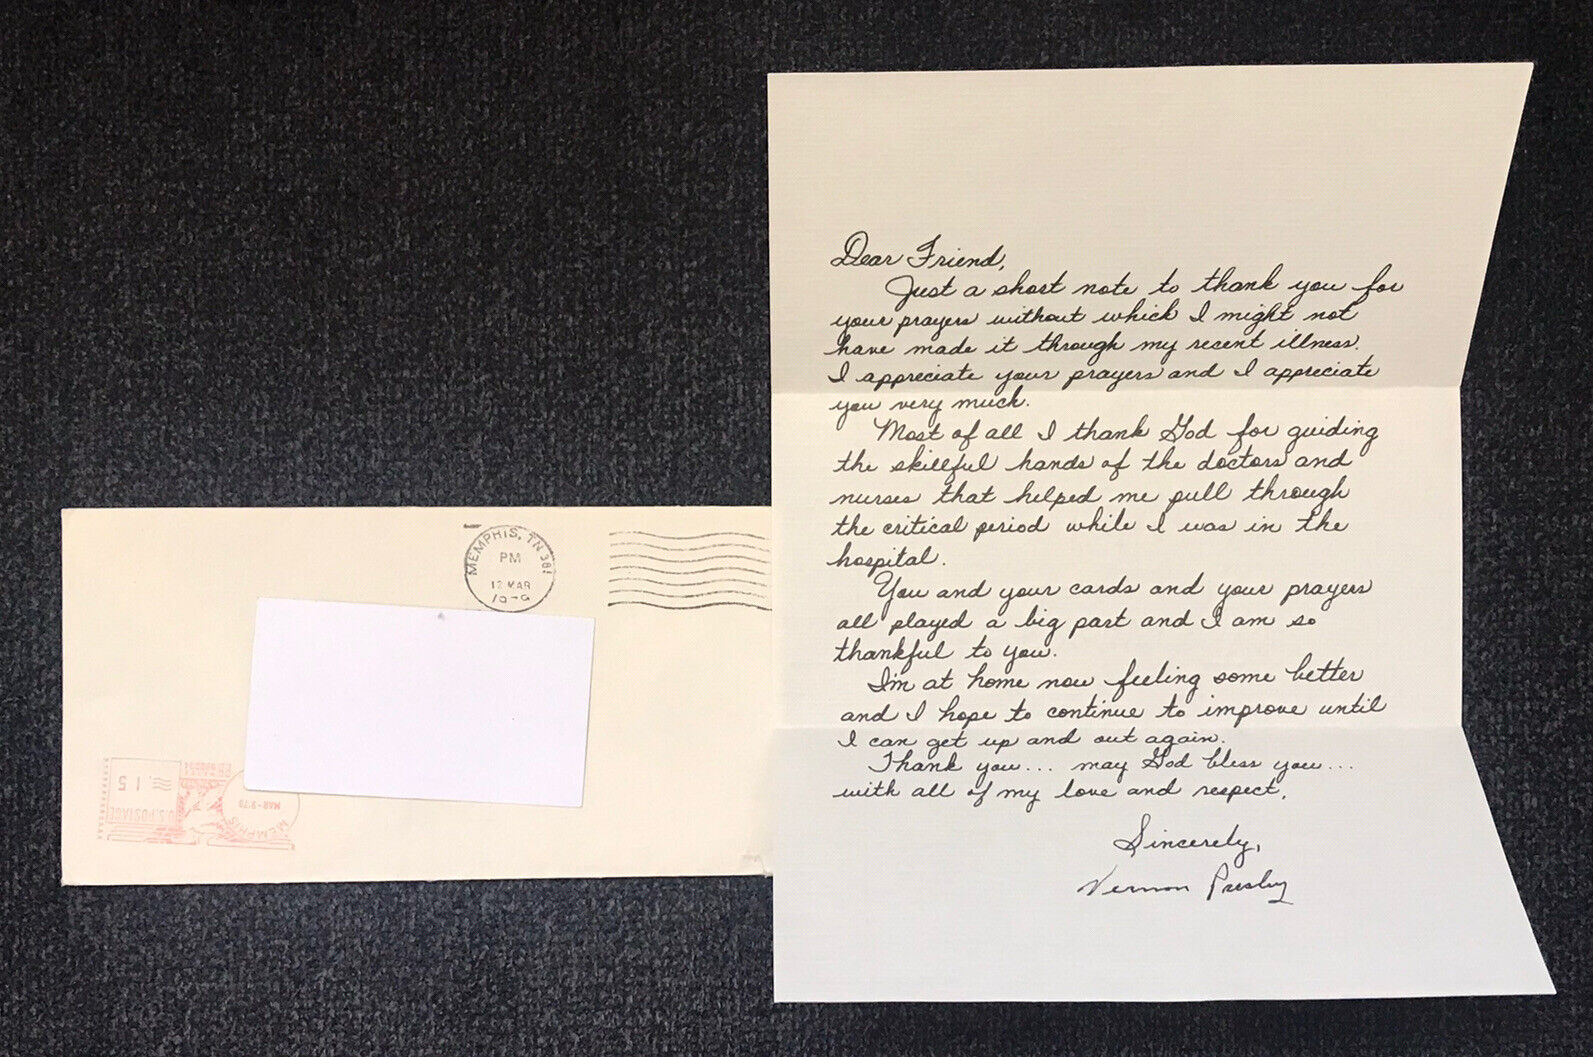 MEMPHIS, TN 381
PM
12 MAR
U.S. POSTAGE
≈.15
MAR-9'79
MEMPHIS
Dear Friend,
Just a short note to thank you for
your prayers without which I might not
have made it through my recent illness.
I appreciate your prayers and I appreciate
you very much.
Most of all I thank God for guiding
the skillful hands of the doctors and
nurses that helped me pull through
the critical period while I was in the
hospital.
You and your cards and your prayers
all played a big part and I am so
thankful to you.
I'm at home now feeling some better
and I hope to continue to improve until
I can get up and out again.
Thank you... may God bless you...
with all of my love and respect,
Sincerely,
Vernon Presley